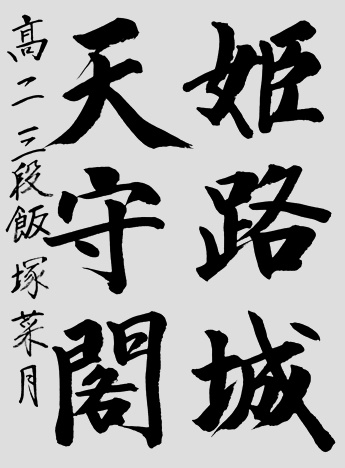 姫路城
天守閣
高二 三段 飯塚菜月